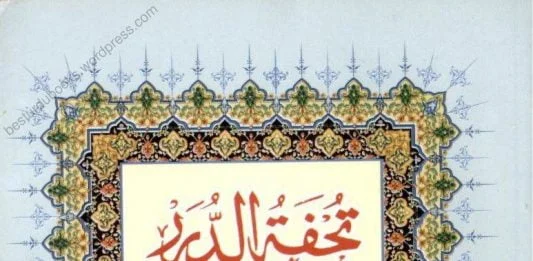 besturdubooks.wordpress.com
تُحْفَةُ الدُّرَرِ